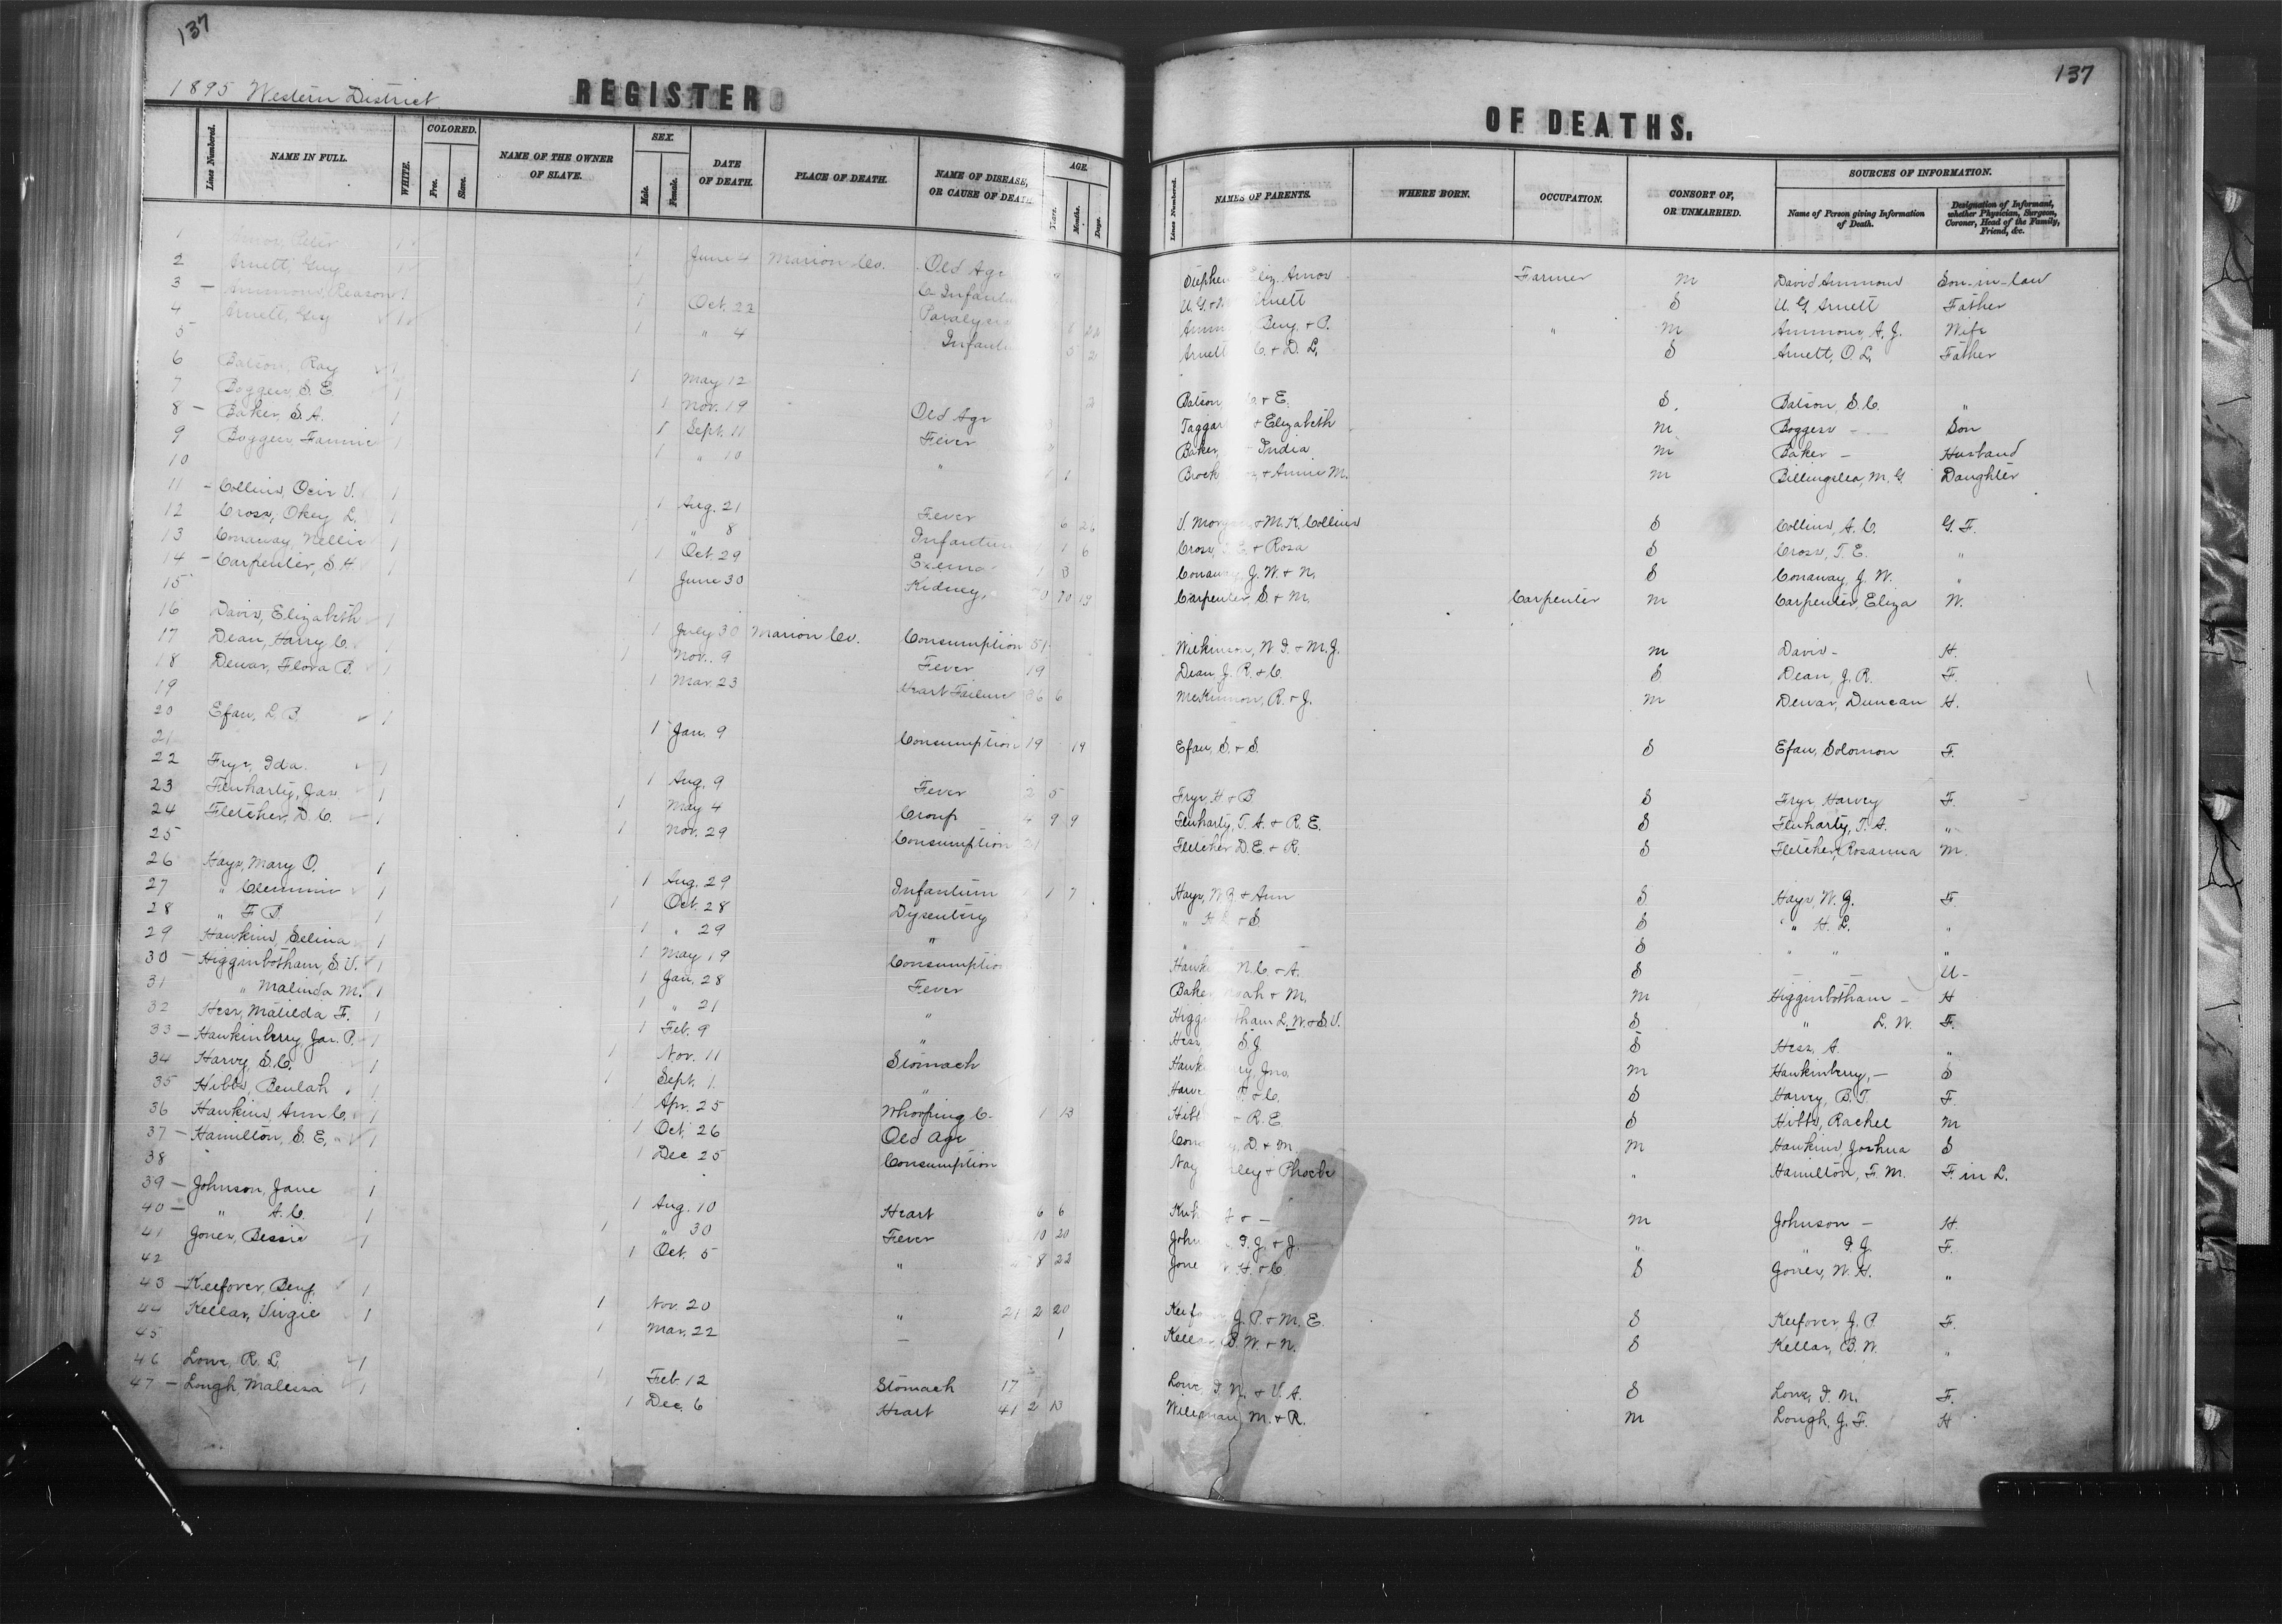 137
1895 Western District
REGISTER
Lines Numbered.
NAME IN FULL.
WHITE.
COLORED.
Free.
Slave.
NAME OF THE OWNER OF SLAVE.
SEX.
Male.
Female.
DATE OF DEATH.
PLACE OF DEATH.
NAME OF DISEASE, OR CAUSE OF DEATH
AGE.
Years.
Months.
Days.
1 Amos, Peter 1 1 June 4 Marion Co. Old Age
2 Arnett, Guy 1 C. Infantum
3 — Ammons, Reason 1 1 Oct. 22 Paralysis
4 Arnett, Guy 1 1 " 4 Infantu 5 2
5
6 Batson, Ray 1 1 May 12
7 Boggess, S. E. 1 1 Nov. 19 Old Age
8 — Baker, S. A. 1 1 Sept. 11 Fever
9 Boggess, Fannie 1 1 " 10 "
10
11 — Collins, Ocie V. 1 1 Aug. 21 Fever 6 26
12 Cross, Okey L. 1 1 " 8 Infantum 1 6
13 Conaway, Nellie 1 1 Oct. 29 Exema 1 3
14 — Carpenter, S. H. 1 1 June 30 Kidney 70 10 19
15
16 Davis, Elizabeth 1 1 July 30 Marion Co. Consumption 51
17 Dean, Harry C. 1 1 Nov. 9 Fever 19
18 Dewar, Flora B. 1 1 Mar. 23 Heart Failure 36 6
19
20 Efaw, L. B. 1 1 Jan. 9 Consumption 19 19
21
22 Frye, Ida 1 1 Aug. 9 Fever 2 5
23 Fluharty, Jas. 1 1 May 4 Croup 4 9 9
24 Fletcher, D. C. 1 1 Nov. 29 Consumption 21
25
26 Hays, Mary O. 1 1 Aug. 29 Infantum 1 7
27 " Clemmie 1 1 Oct. 28 Dysentery
28 " F. P. 1 1 " 29 "
29 Hawkins, Selina 1 1 May 19 Consumption
30 — Higginbotham, S. V. 1 1 Jan. 28 Fever
31 " Malinda M. 1 1 " 21 "
32 Hess, Matilda F. 1 1 Feb. 9 "
33 — Hawkinberry, Jas. P. 1 1 Nov. 11 Stomach
34 Harvey, S. C. 1 1 Sept. 1 "
35 Hibbs, Beulah 1 1 Apr. 25 Whooping C. 1 13
36 Hawkins, Ann C. 1 1 Oct. 26 Old Age
37 — Hamilton, S. E. 1 1 Dec 25 Consumption
38
39 — Johnson, Jane 1 1 Aug. 10 Heart 6 6
40 — " A. C. 1 1 " 30 Fever 10 20
41 Jones, Bessie 1 1 Oct. 5 " 8 22
42
43 — Keefover, Benj. 1 1 Nov. 20 " 21 2 20
44 Kellar, Virgie 1 1 Mar. 22 — 1
45
46 Lowe, R. L. 1 1 Feb. 12 Stomach 17
47 — Lough, Malessa 1 1 Dec. 6 Heart 41 2 13
137
OF DEATHS.
Lines Numbered.
NAMES OF PARENTS.
WHERE BORN.
OCCUPATION.
CONSORT OF, OR UNMARRIED.
SOURCES OF INFORMATION.
Name of Person giving Information of Death.
Designation of Informant, whether Physician, Surgeon, Coroner, Head of the Family, Friend, &c.
Stephen Eliz. Amos Farmer M David Ammons Son-in-law
U. G. + Arnett S U. G. Arnett Father
Amm Benj. + P. " M Ammons, A. J. Wife
Arnett C. + D. L. S Arnett, O. L. Father
Batson, + E. S. Batson, S. C. "
Taggar + Elizabeth M Boggess — Son
Baker, India M Baker — Husband
Brock + Annie M. M Billingslea, M. G. Daughter
V. Morgan + M. K. Collins S Collins, A. C. G. F.
Cross, T. E. + Rosa S Cross, T. E. "
Conaway, J. W. + N. S Conaway, J. W. "
Carpenter, S. + M. Carpenter M Carpenter, Eliza W.
Wilkinson, W. I. + M. J. M Davis — H.
Dean, J. R. + C. S Dean, J. R. F.
McKinnon, R. + J. M Dewar, Duncan H.
Efaw, S. + S. S Efaw, Solomon F.
Frye, H. + B. S Frye, Harvey F.
Fluharty, T. A. + R. E. S Fluharty, T. A. "
Fletcher D. E. + R. S Fletcher, Rosanna M.
Hays, W. G. + Ann S Hays, W. G. F
" H. L. + S. S " H. L. "
" S " " "
Hawk N. C. + A. S U—
Baker, Noah + M. M Higginbotham — H
Higg tham L. W. + S. V. S " L. W. F.
Hess S. J. S Hess, A. "
Hawk ry, Jno. M Hawkinberry, — S
Harve + C. S Harvey, B. T. F.
Hibb + R. E. S Hibbs, Rachel M
Con D. + M. M Hawkins, Joshua S
Nay ley + Phoebe " Hamilton, F. M. F. in L.
+ — M Johnson — H.
John I. G. + J. " " I. G. F.
Jone W. H. + C. S Jones, W. H. "
Keefo J. P. + M. E. S Keefover, J. P. F.
Kellar, B. W. + N. S Kellar, B. W. "
Lowe, I. N. + V. A. S Lowe, I. N. F.
M. + R. M Lough, J. F. H